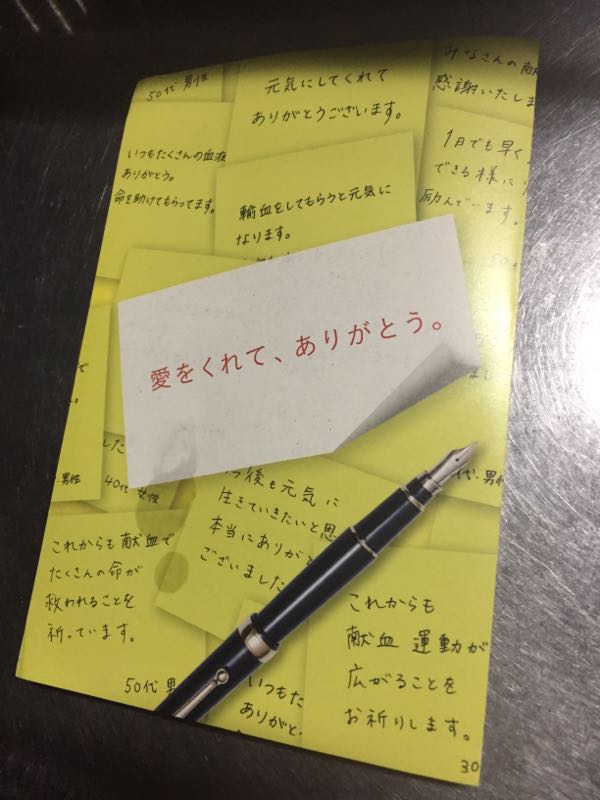 50代 男性
元気にしてくれて
ありがとうございます。
みなさんの献
感謝いたしま
いつもたくさんの血液
ありがとう。
命を助けてもらってます。
輸血をしてもらうと元気に
なります。
1日でも早く
できる様に
励んでいます。
愛をくれて、ありがとう。
した
男性
40代 女性
今後も元気に
生きていきたいと思
本当にありがと
ございました
代・男性
これからも献血で
たくさんの命が
救われることを
祈っています。
50代 男
いつもた
ありがと
これからも
献血 運動が
広がることを
お祈りします。
30